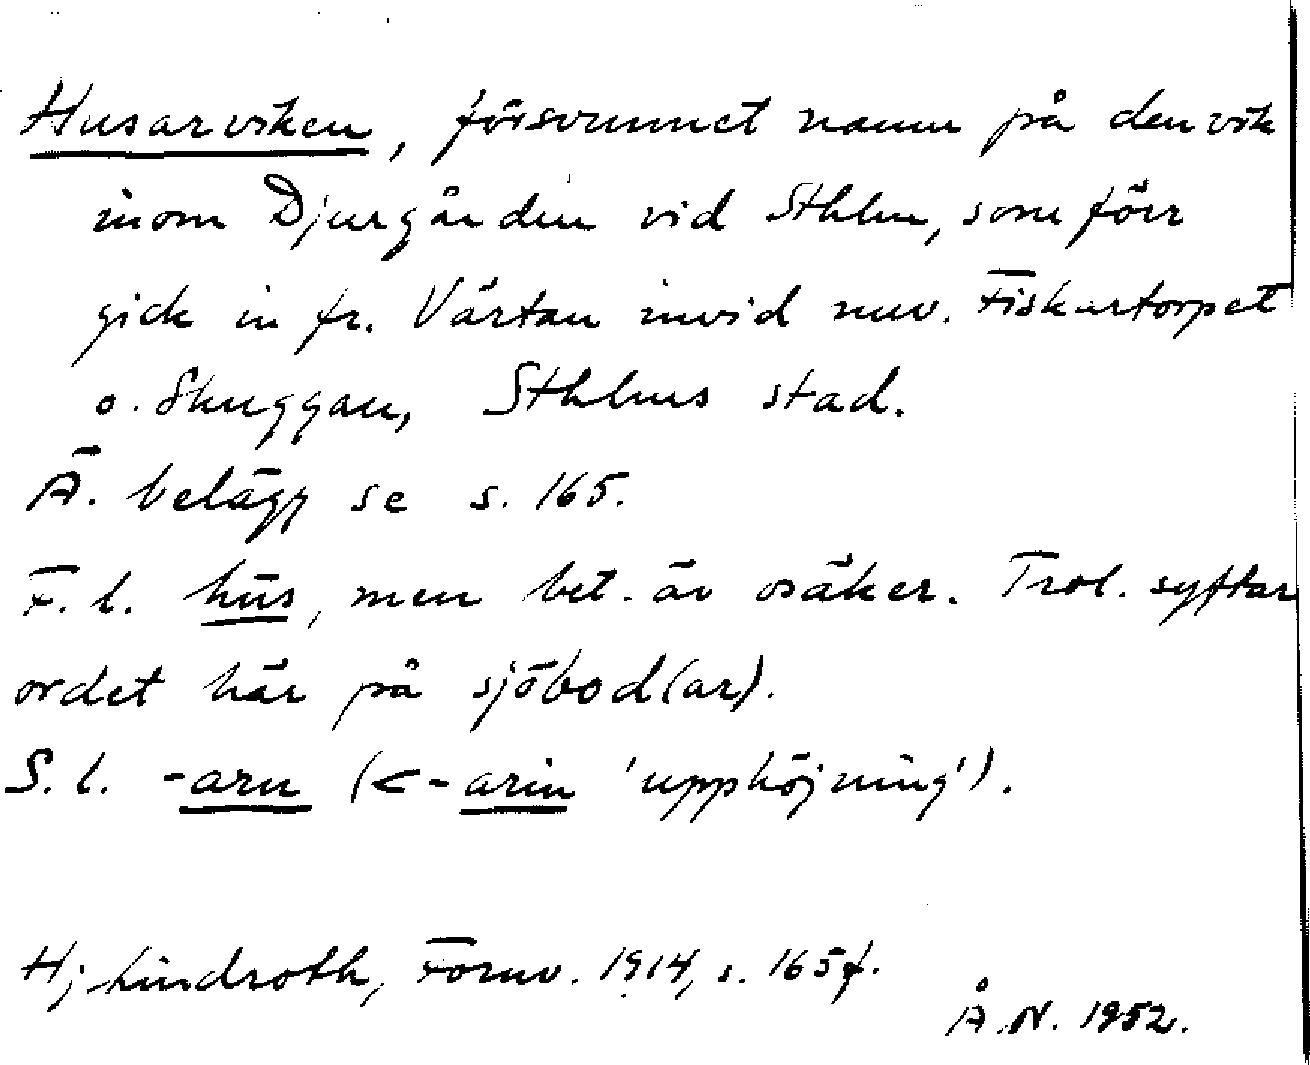 Husarviken, försvunnet namn på den vik
inom Djurgården vid Sthlm, som förr
gick in fr. Värtan invid nuv. Fiskartorpet
o. Skuggan, Sthlms stad.
Ä. belägg se s. 165.
F.l. hūs, men bet. är osäker. Trol. syftar
ordet här på sjöbod(ar).
S.l. -arn (<-arin 'upphöjning').
Hj. Lindroth, Fornv. 1914, s. 165f.
Å.N. 1952.